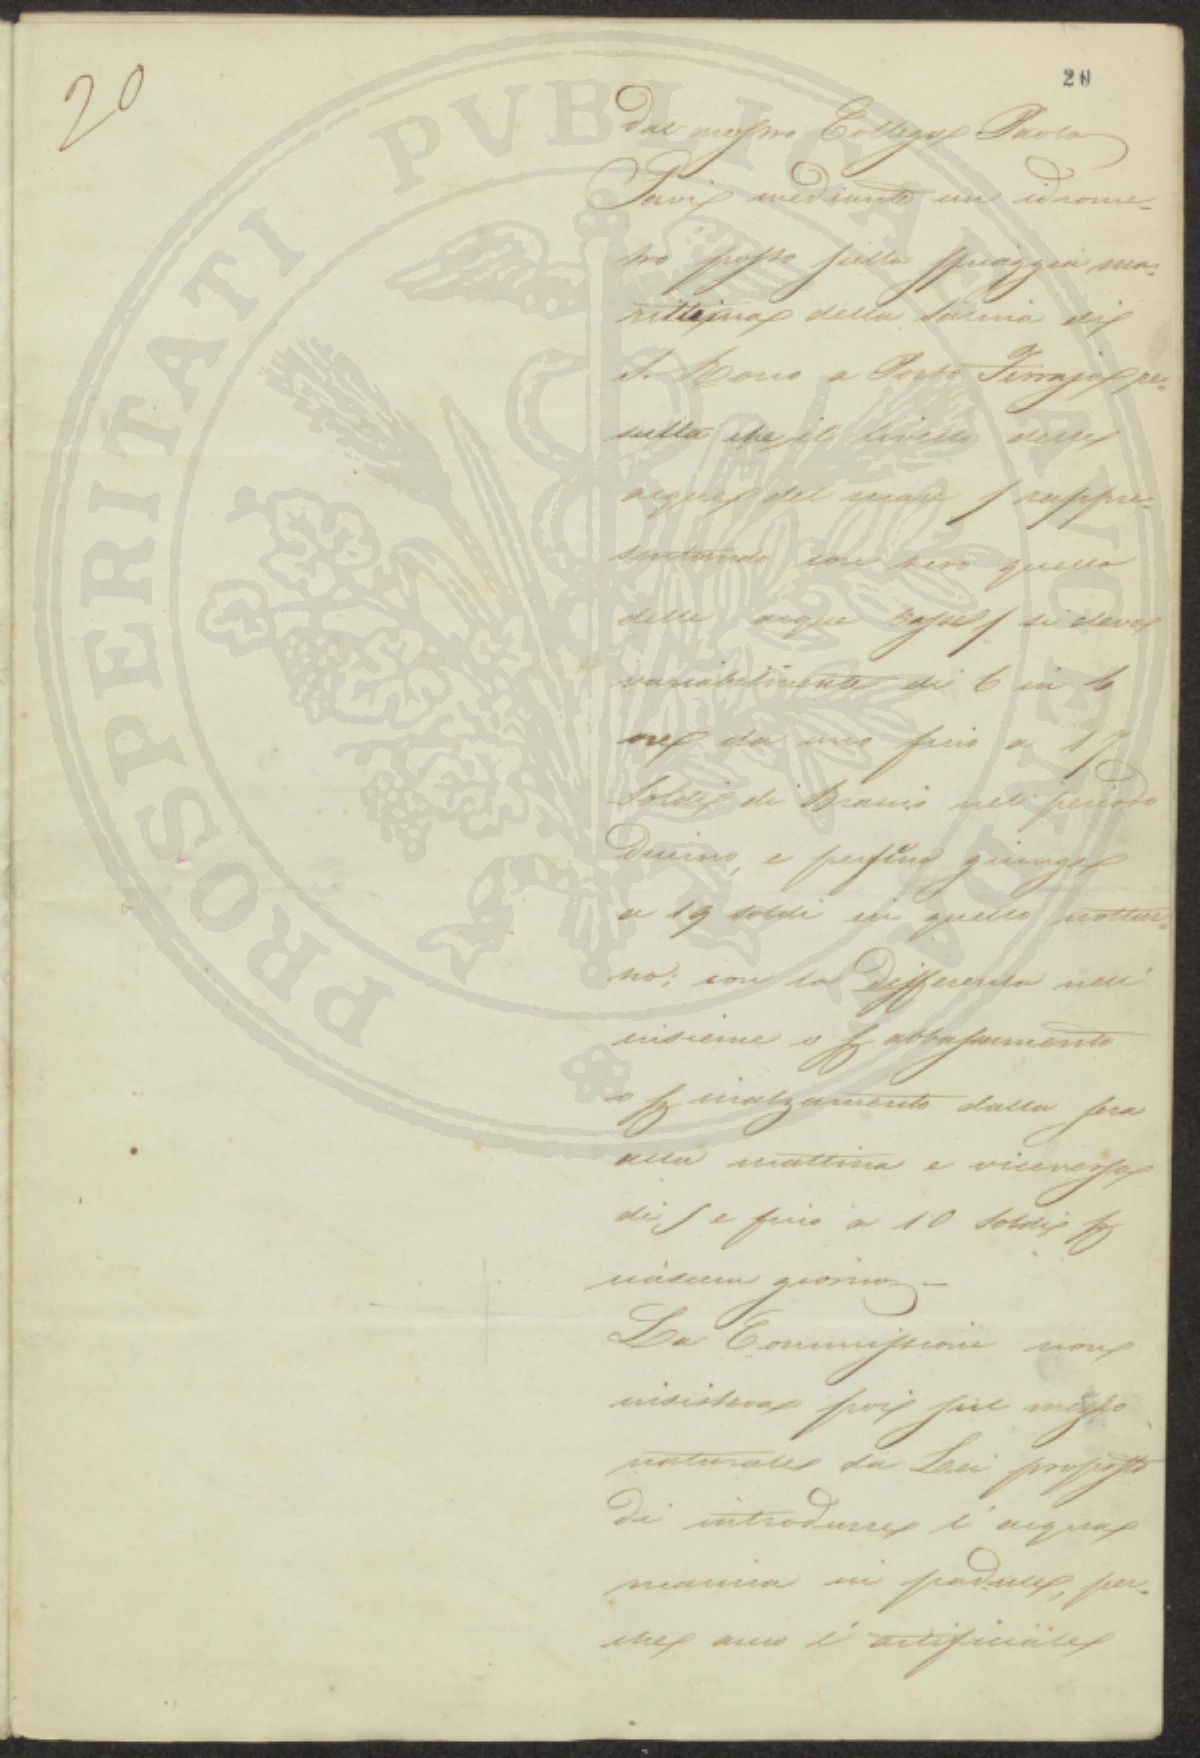 20
20
dal nostro Collega Paolo
Savi mediante un idrome-
tro posto sulla spiaggia ma-
rittima della Salina di
S. Rocco a Porto Ferrajo re-
sulta che il livello delle
acque del mare / rappre-
sentando con zero quello
delle acque basse / si eleva
variabilmente di 6 in 6
ore da uno fino a 17
Soldi di Braccio nel periodo
Diurno, e persino giunge
a 19 soldi in quello nottur-
no; con la differenza nell'
insieme o abbassamento
o inalzamento dalla sera
alla mattina e viceversa
di 5 e fino a 10 Soldi
ciascun giorno —
La Commissione non
insisteva poi sul mezzo
naturale da Lei proposto
di introdurre l'acqua
marina in padule, per-
che anco l'artificiale
PROSPERITATI PVBLICAE AVGENDAE